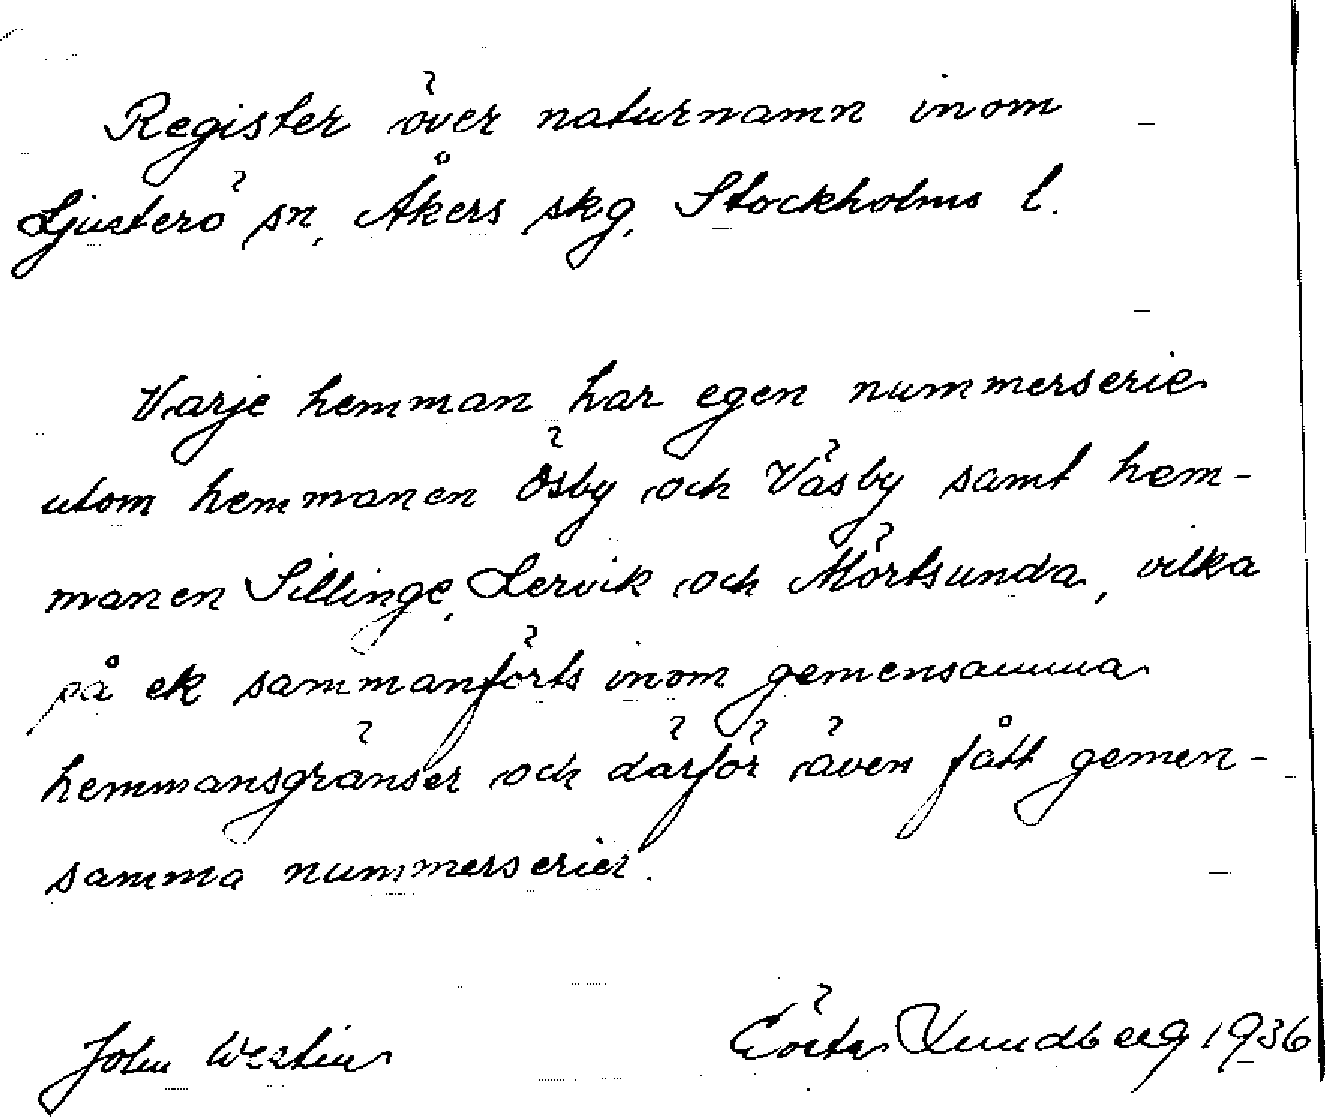 Register över naturnamn inom
Ljusterö sn, Åkers skg, Stockholms l.
Varje hemman har egen nummerserie
utom hemmanen Ösby och Väsby samt hem-
manen Sillinge, Lervik och Mörtsunda, vilka
på ek sammanförts inom gemensamma
hemmansgränser och därför även fått gemen-
samma nummerserier.
John Westin Gösta Lundberg 1936